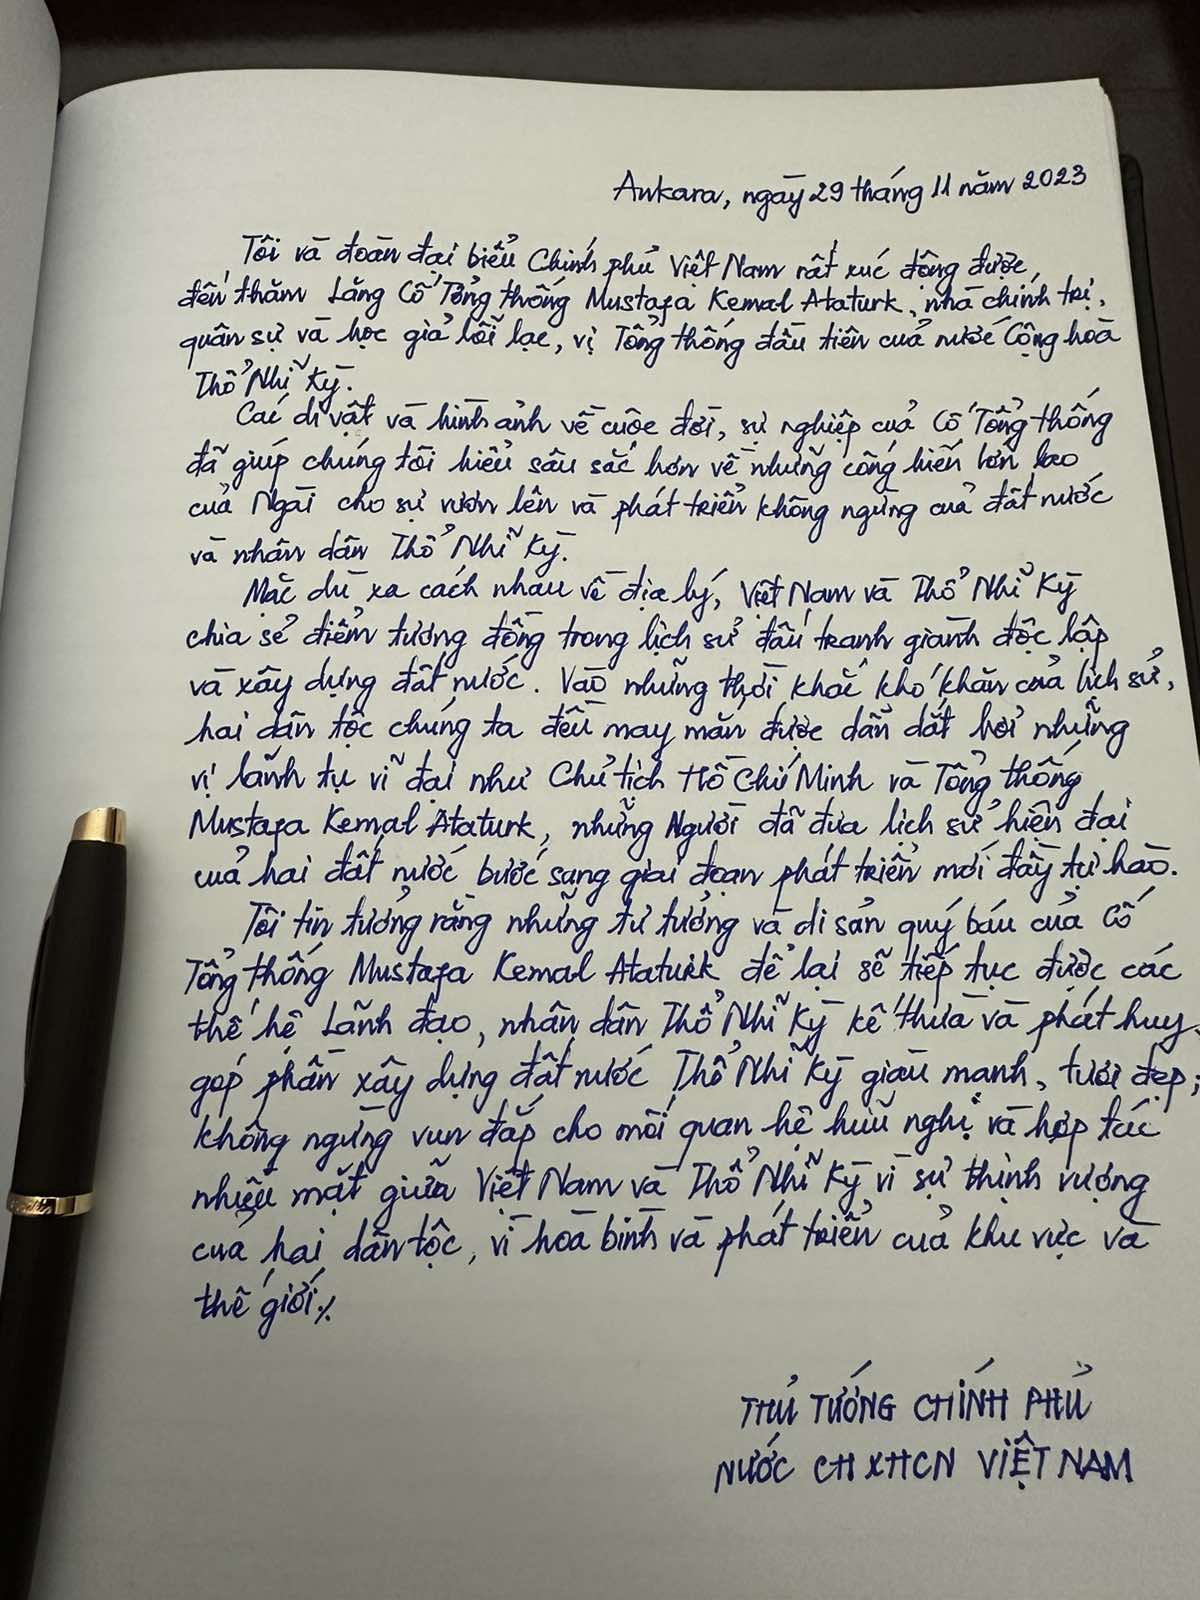 Ankara, ngày 29 tháng 11 năm 2023
Tôi và đoàn đại biểu Chính phủ Việt Nam rất xúc động được
đến thăm Lăng Cố Tổng thống Mustafa Kemal Ataturk, nhà chính trị,
quân sự và học giả lỗi lạc, vị Tổng thống đầu tiên của nước Cộng hoà
Thổ Nhĩ Kỳ.
Các di vật và hình ảnh về cuộc đời, sự nghiệp của Cố Tổng thống
đã giúp chúng tôi hiểu sâu sắc hơn về những cống hiến lớn lao
của Ngài cho sự vươn lên và phát triển không ngừng của đất nước
và nhân dân Thổ Nhĩ Kỳ.
Mặc dù xa cách nhau về địa lý, Việt Nam và Thổ Nhĩ Kỳ
chia sẻ điểm tương đồng trong lịch sử đấu tranh giành độc lập
và xây dựng đất nước. Vào những thời khắc khó khăn của lịch sử,
hai dân tộc chúng ta đều may mắn được dẫn dắt bởi những
vị lãnh tụ vĩ đại như Chủ tịch Hồ Chí Minh và Tổng thống
Mustafa Kemal Ataturk, những Người đã đưa lịch sử hiện đại
của hai đất nước bước sang giai đoạn phát triển mới đầy tự hào.
Tôi tin tưởng rằng những tư tưởng và di sản quý báu của Cố
Tổng thống Mustafa Kemal Ataturk để lại sẽ tiếp tục được các
thế hệ Lãnh đạo, nhân dân Thổ Nhĩ Kỳ kế thừa và phát huy,
góp phần xây dựng đất nước Thổ Nhĩ Kỳ giàu mạnh, tươi đẹp;
không ngừng vun đắp cho mối quan hệ hữu nghị và hợp tác
nhiều mặt giữa Việt Nam và Thổ Nhĩ Kỳ vì sự thịnh vượng
của hai dân tộc, vì hoà bình và phát triển của khu vực và
thế giới ./.
THỦ TƯỚNG CHÍNH PHỦ
NƯỚC CH XHCN VIỆT NAM